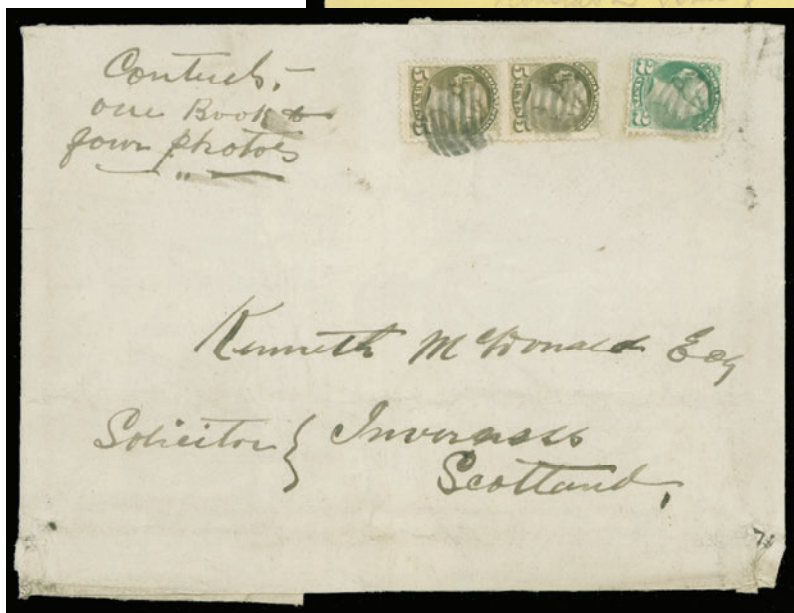 Contents,-
one Book &
four photos
5 CENTS 5
5 CENTS 5
2 CENTS 2
Kenneth McDonald Esq
Solicitor } Inverness
Scotland,